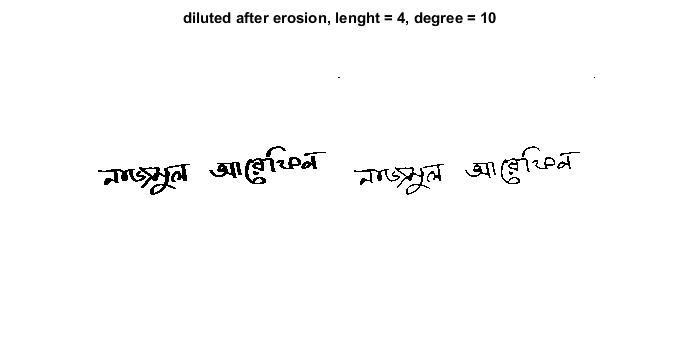 diluted after erosion, lenght = 4, degree = 10
নাজমুল আরেফিন নাজমুল আরেফিন